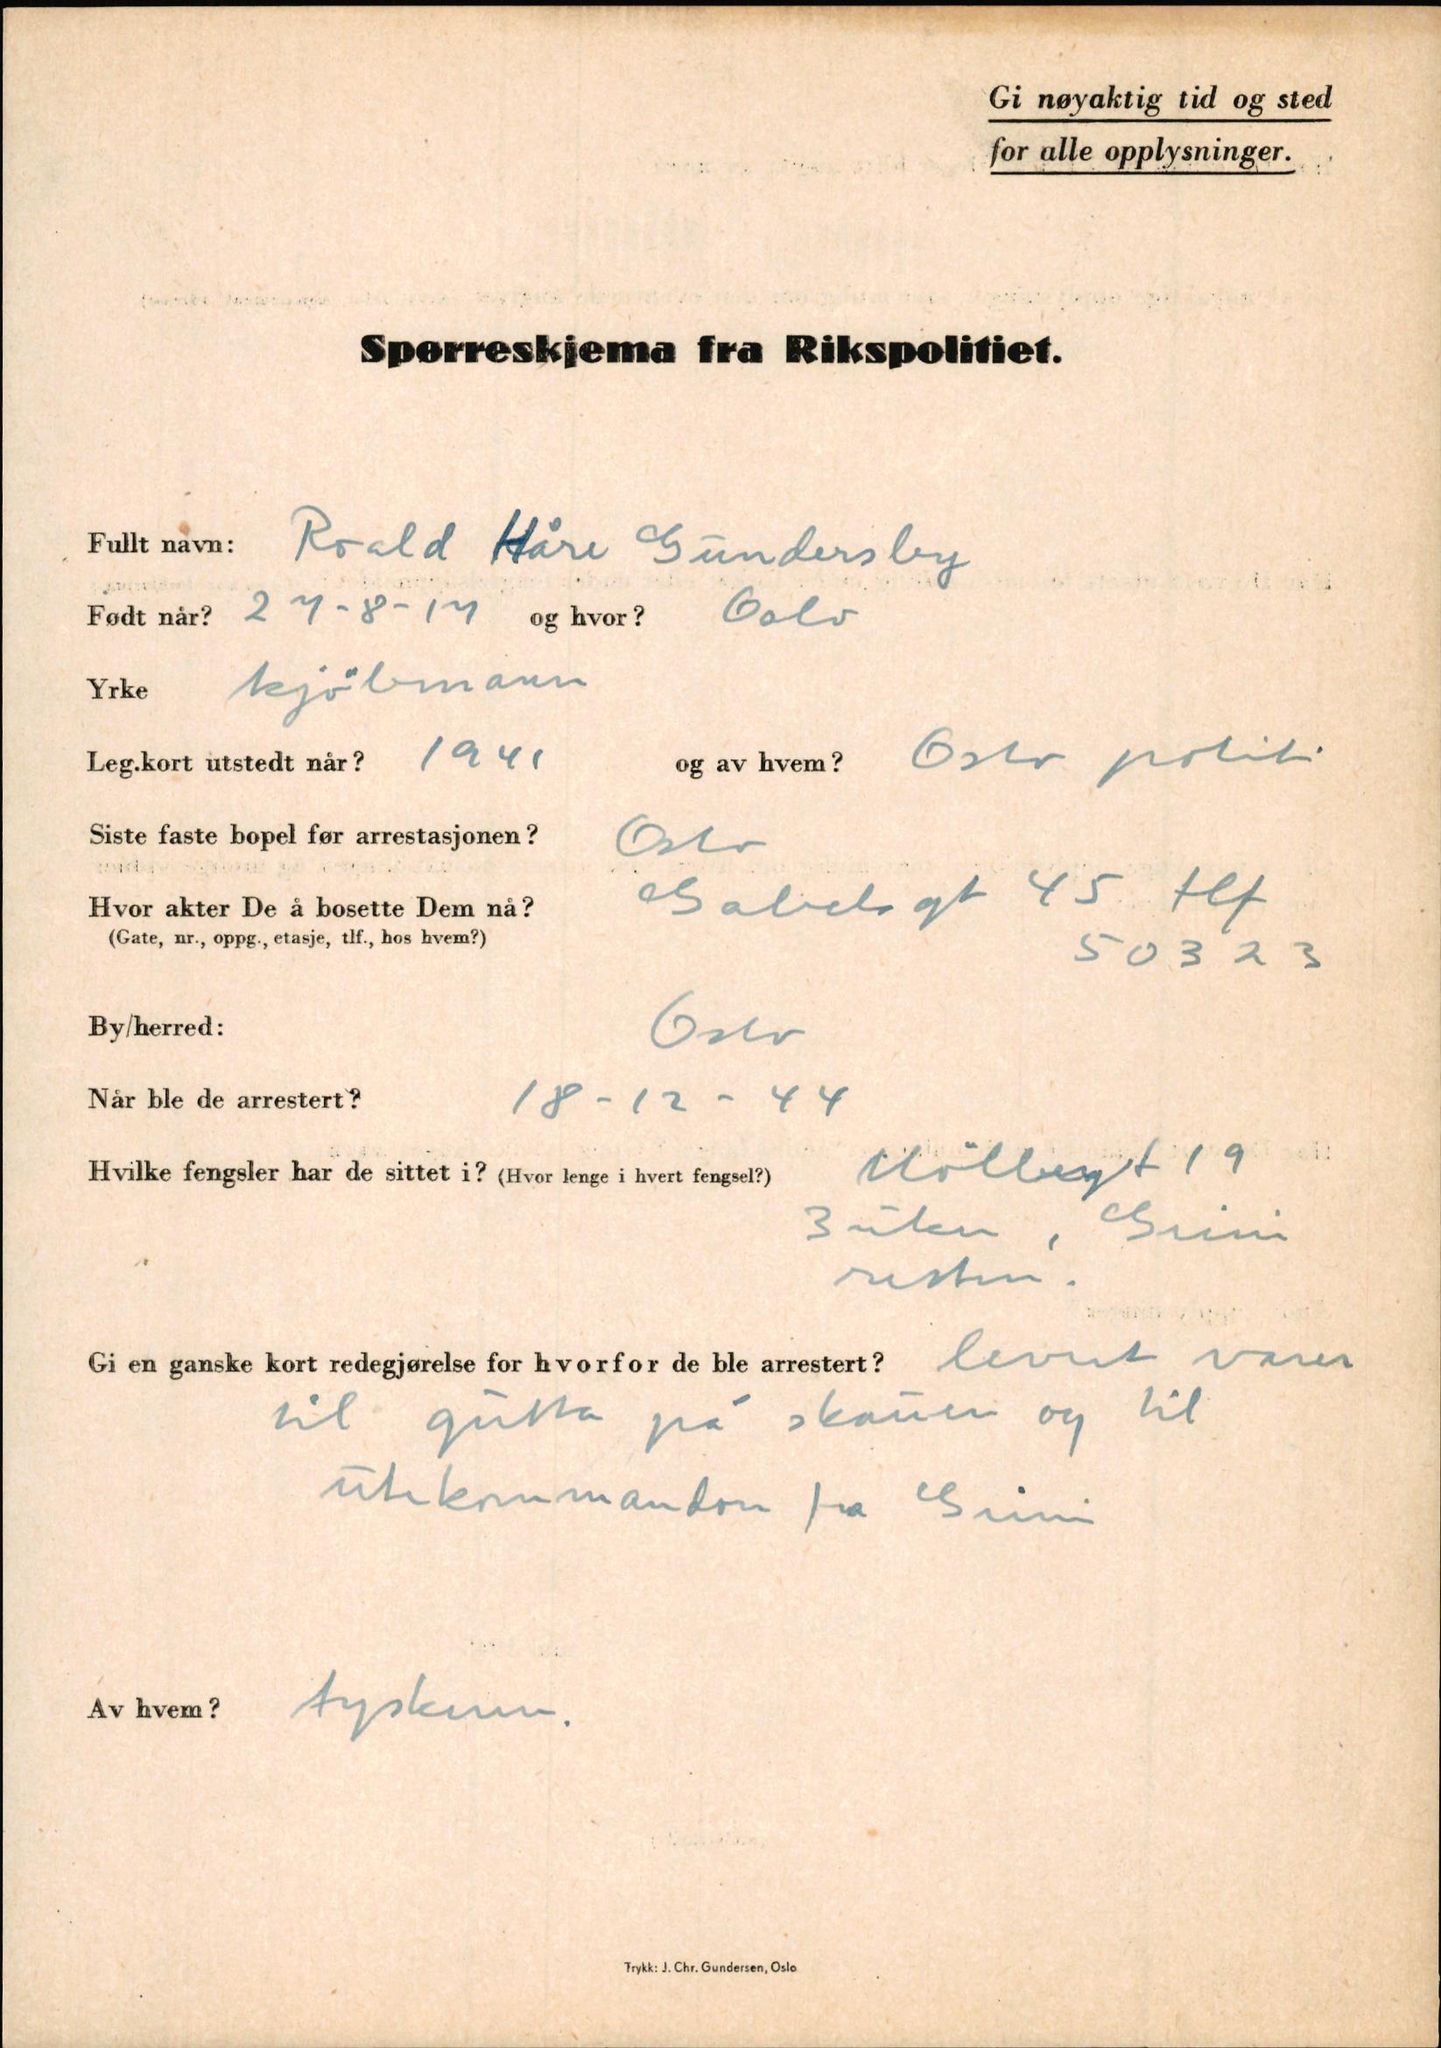 Gi nøyaktig tid og sted
for alle opplysninger.
Spørreskjema fra Rikspolitiet.
Fullt navn: Roald Håre Gundersby
Født når? 27-8-17 og hvor? Oslo
Yrke kjöbmann
Leg.kort utstedt når? 1941 og av hvem? Oslo politi
Siste faste bopel før arrestasjonen? Oslo
Hvor akter De å bosette Dem nå? Gabelsgt 45 tlf
(Gate, nr., oppg., etasje, tlf., hos hvem?) 50323
By/herred: Oslo
Når ble de arrestert? 18-12-44
Hvilke fengsler har de sittet i? (Hvor lenge i hvert fengsel?) Möllergt 19
3 uker, Grini
resten.
Gi en ganske kort redegjørelse for hvorfor de ble arrestert? levert varer
til gutta på skauen og til
utekommandon fra Grini
Av hvem? tyskerne.
Trykk: J. Chr. Gundersen, Oslo